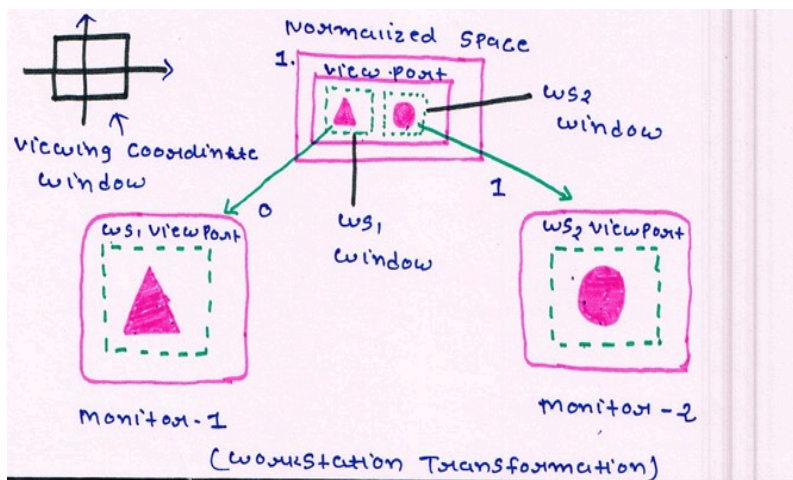 Normalized Space
1.
View Port
WS2
window
Viewing Coordinate
window
0
1
WS1
window
WS1 ViewPort
WS2 ViewPort
Monitor-1
Monitor-2
(Workstation Transformation)